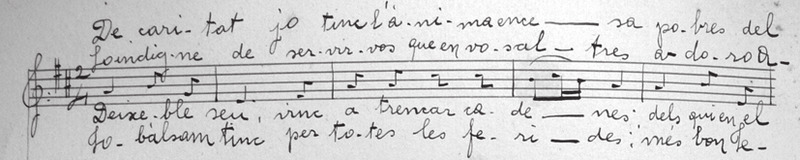 De cari-tat jo tinc l'à-ni-ma ence — sa po-bres del
Jo indig-ne de ser-vir-vos que en vo-sal- tres a-do-ro a-
2
4
Deixe-ble seu, vinc a trencar ca-de — nes; dels qui en el
Jo-bàlsam tinc per to-tes les fe-ri — des; més bon Je-